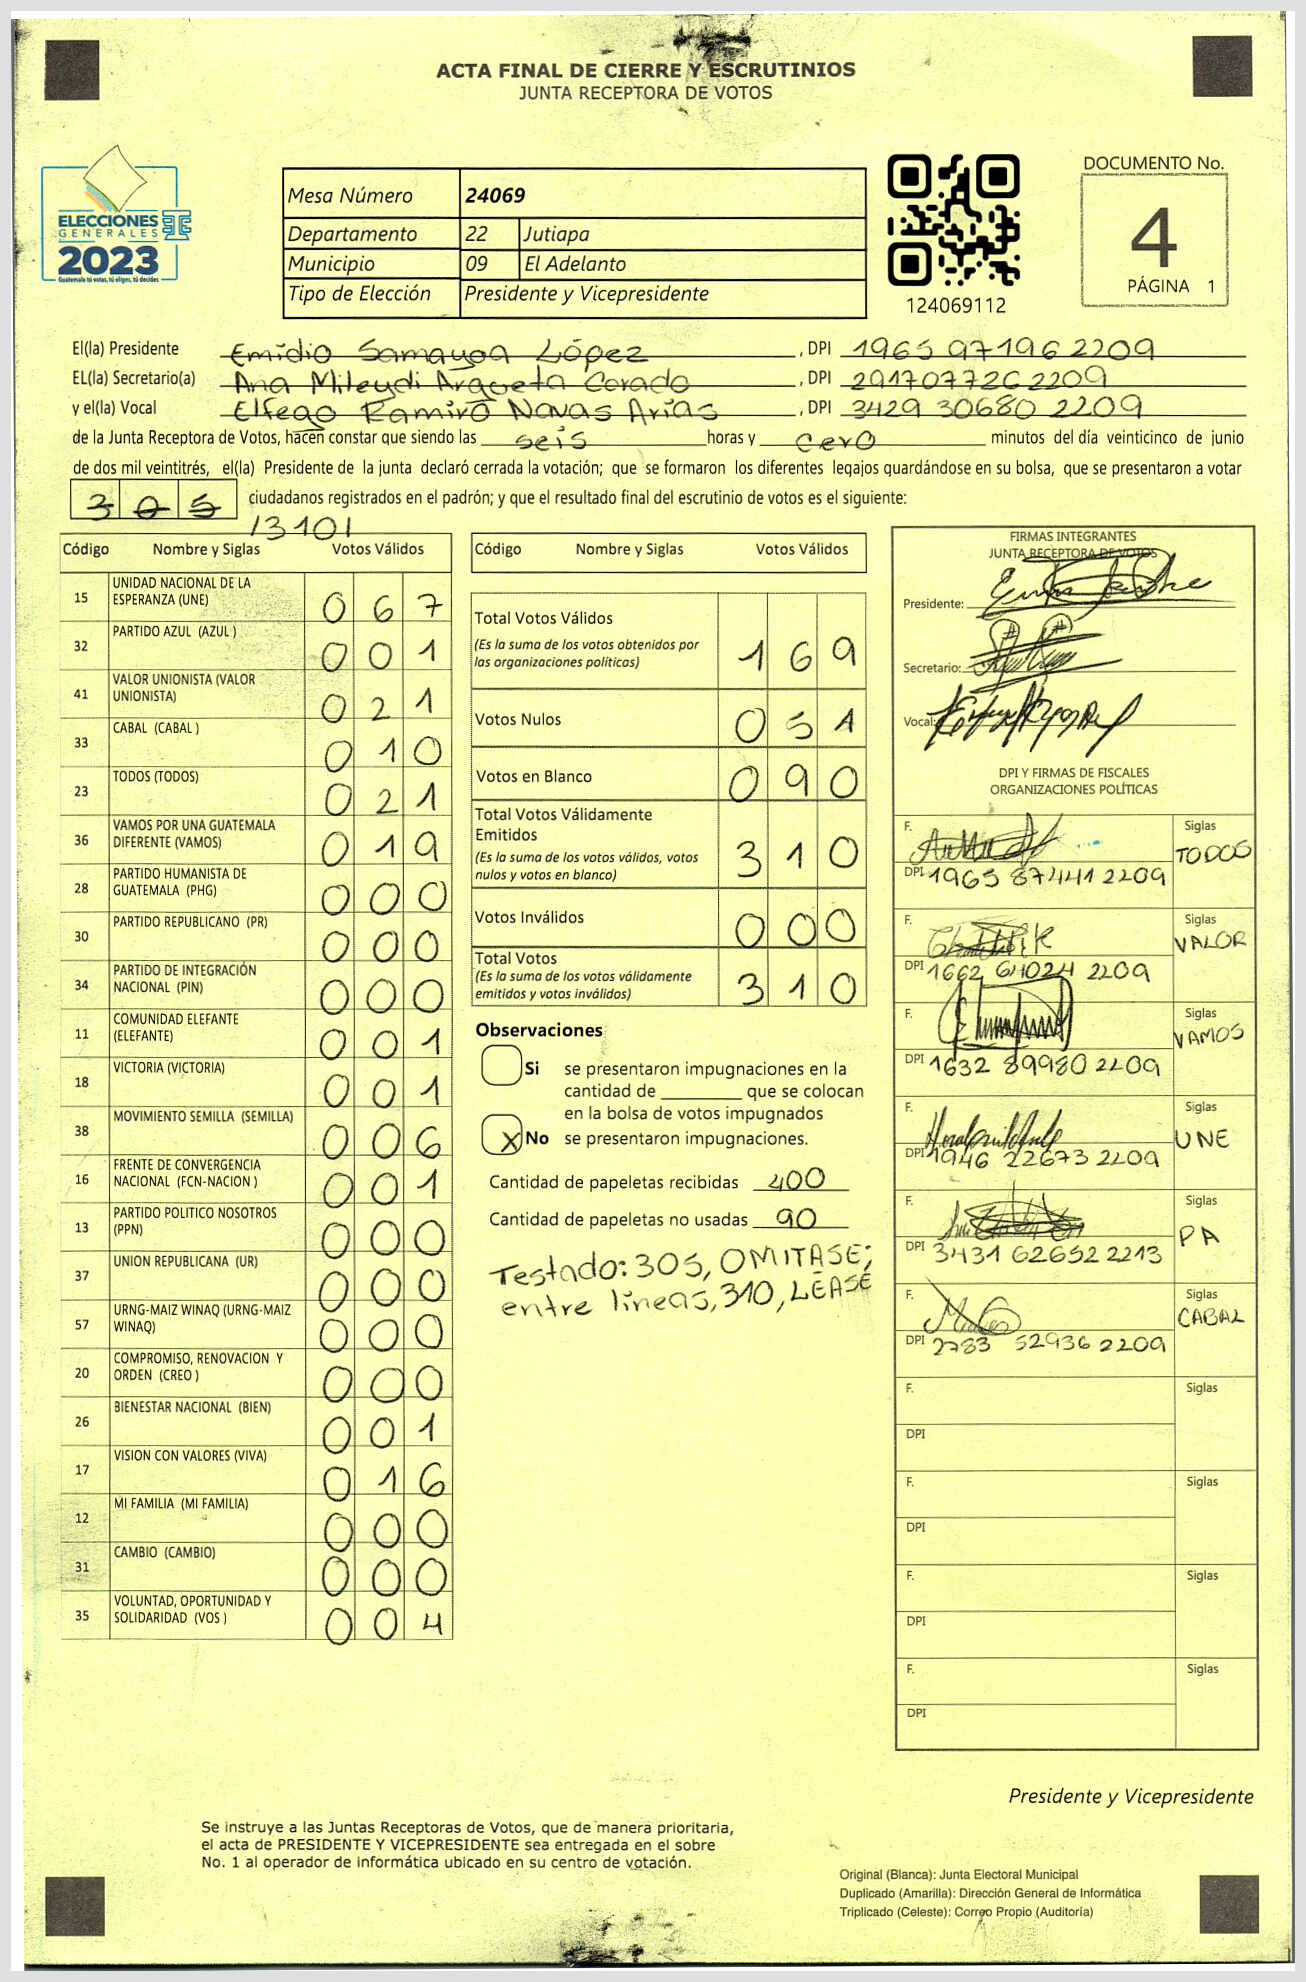 ACTA FINAL DE CIERRE Y ESCRUTINIOS
JUNTA RECEPTORA DE VOTOS
ELECCIONES
GENERALES
2023
Guatemala tú votas, tú eliges, tú decides
Mesa Número 24069
Departamento 22 Jutiapa
Municipio 09 El Adelanto
Tipo de Elección Presidente y Vicepresidente
124069112
DOCUMENTO No.
4
PÁGINA 1
El(la) Presidente Emidio Samayoa López, DPI 1965 97196 2209
EL(la) Secretario(a) Ana Mileydi Argueta Corado, DPI 2917077262209
y el(la) Vocal Elfego Ramiro Navas Arias, DPI 3429 30680 2209
de la Junta Receptora de Votos, hacen constar que siendo las seis horas y cero minutos del día veinticinco de junio
de dos mil veintitrés, el(la) Presidente de la junta declaró cerrada la votación; que se formaron los diferentes legajos quardándose en su bolsa, que se presentaron a votar
305 ciudadanos registrados en el padrón; y que el resultado final del escrutinio de votos es el siguiente:
/310/
Código Nombre y Siglas Votos Válidos
15 UNIDAD NACIONAL DE LA ESPERANZA (UNE) 067
32 PARTIDO AZUL (AZUL ) 001
41 VALOR UNIONISTA (VALOR UNIONISTA) 021
33 CABAL (CABAL ) 010
23 TODOS (TODOS) 021
36 VAMOS POR UNA GUATEMALA DIFERENTE (VAMOS) 019
28 PARTIDO HUMANISTA DE GUATEMALA (PHG) 000
30 PARTIDO REPUBLICANO (PR) 000
34 PARTIDO DE INTEGRACIÓN NACIONAL (PIN) 000
11 COMUNIDAD ELEFANTE (ELEFANTE) 001
18 VICTORIA (VICTORIA) 001
38 MOVIMIENTO SEMILLA (SEMILLA) 006
16 FRENTE DE CONVERGENCIA NACIONAL (FCN-NACION ) 001
13 PARTIDO POLITICO NOSOTROS (PPN) 000
37 UNION REPUBLICANA (UR) 000
57 URNG-MAIZ WINAQ (URNG-MAIZ WINAQ) 000
20 COMPROMISO, RENOVACION Y ORDEN (CREO ) 000
26 BIENESTAR NACIONAL (BIEN) 001
17 VISION CON VALORES (VIVA) 016
12 MI FAMILIA (MI FAMILIA) 000
31 CAMBIO (CAMBIO) 000
35 VOLUNTAD, OPORTUNIDAD Y SOLIDARIDAD (VOS ) 004
Código Nombre y Siglas Votos Válidos
Total Votos Válidos 169
(Es la suma de los votos obtenidos por
las organizaciones políticas)
Votos Nulos 051
Votos en Blanco 090
Total Votos Válidamente
Emitidos 310
(Es la suma de los votos válidos, votos
nulos y votos en blanco)
Votos Inválidos 000
Total Votos 310
(Es la suma de los votos válidamente
emitidos y votos inválidos)
Observaciones
Si se presentaron impugnaciones en la
cantidad de ________ que se colocan
en la bolsa de votos impugnados
X No se presentaron impugnaciones.
Cantidad de papeletas recibidas 400
Cantidad de papeletas no usadas 90
Testado: 305, OMITASE;
entre líneas, 310, LÉASE
FIRMAS INTEGRANTES
JUNTA RECEPTORA DE VOTOS
Presidente:
Secretario:
Vocal:
DPI Y FIRMAS DE FISCALES
ORGANIZACIONES POLÍTICAS
F. Siglas
TODOS
DPI 1965 87441 2209
F. Siglas
VALOR
DPI 1662 64024 2209
F. Siglas
VAMOS
DPI 1632 89980 2209
F. Siglas
UNE
DPI 1946 22673 2209
F. Siglas
PA
DPI 3431 62652 2213
F. Siglas
CABAL
DPI 2783 52936 2209
F. Siglas
DPI
F. Siglas
DPI
F. Siglas
DPI
F. Siglas
DPI
Presidente y Vicepresidente
Se instruye a las Juntas Receptoras de Votos, que de manera prioritaria,
el acta de PRESIDENTE Y VICEPRESIDENTE sea entregada en el sobre
No. 1 al operador de informática ubicado en su centro de votación.
Original (Blanca): Junta Electoral Municipal
Duplicado (Amarilla): Dirección General de Informática
Triplicado (Celeste): Correo Propio (Auditoría)